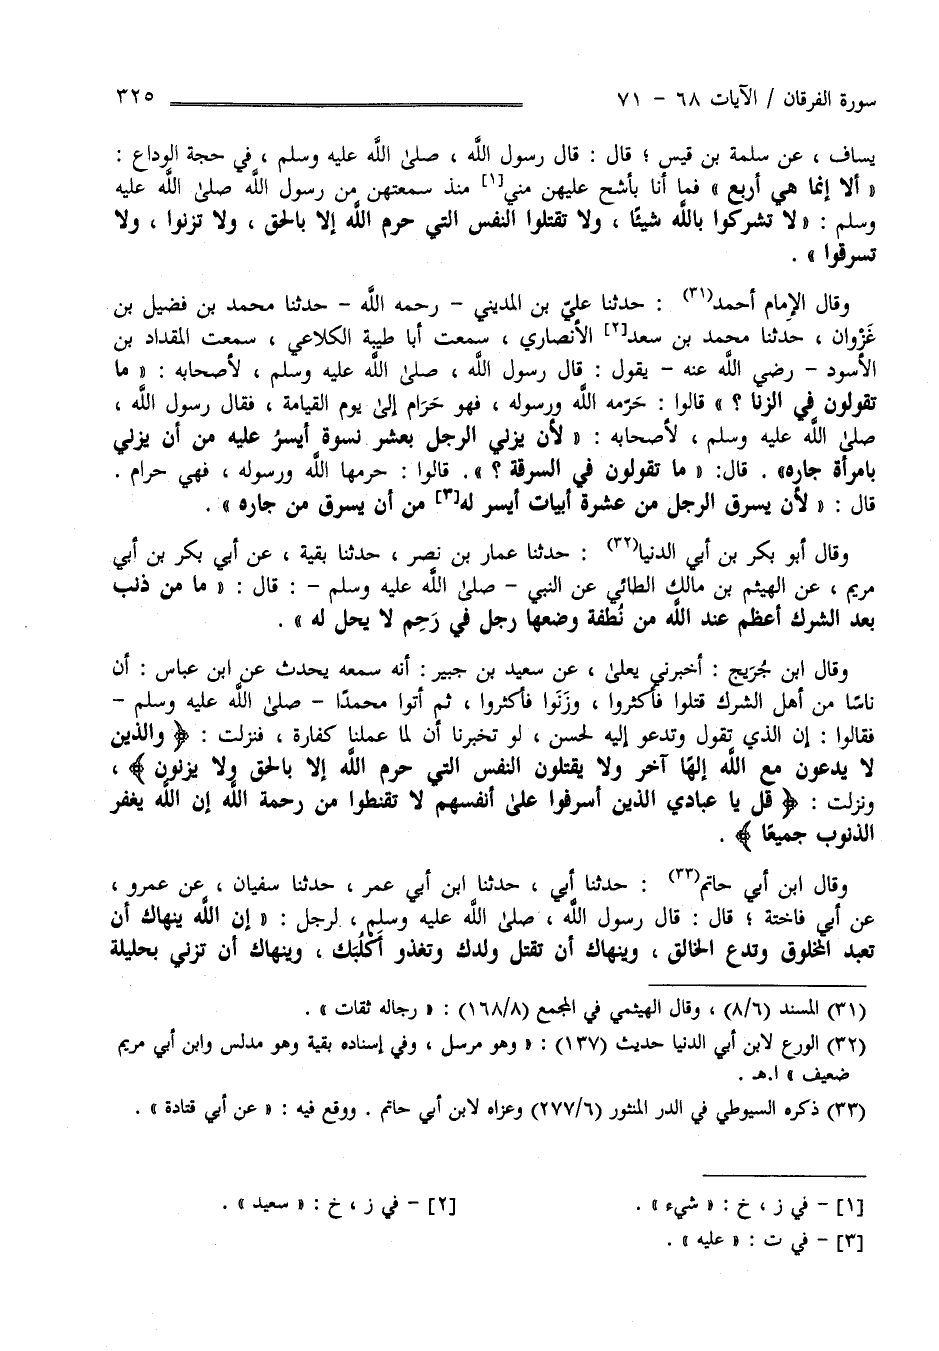 سورة الفرقان / الآيات ٦٨ - ٧١ ٣٢٥
يساف ، عن سلمة بن قيس ؛ قال : قال رسول اللَّه ، صلىٰ اللَّه عليه وسلم ، في حجة الوداع :
« ألا إنما هي أربع » فما أنا بأشح عليهن مني[١] منذ سمعتهن من رسول اللَّه صلىٰ اللَّه عليه
وسلم : «لا تشركوا باللَّه شيئًا ، ولا تقتلوا النفس التي حرم اللَّه إلا بالحق ، ولا تزنوا ، ولا
تسرقوا » .
وقال الإمام أحمد(٣١) : حدثنا عليّ بن المديني - رحمه اللَّه - حدثنا محمد بن فضيل بن
غَزْوان ، حدثنا محمد بن سعد[٢] الأنصاري ، سمعت أبا طيبة الكلاعي ، سمعت المقداد بن
الأسود - رضي اللَّه عنه - يقول : قال رسول اللَّه ، صلىٰ اللَّه عليه وسلم ، لأصحابه : « ما
تقولون في الزنا ؟ » قالوا : حَرّمه اللَّه ورسوله ، فهو حَرَام إلىٰ يوم القيامة ، فقال رسول اللَّه ،
صلىٰ اللَّه عليه وسلم ، لأصحابه : « لأن يزني الرجل بعشر نسوة أيسرُ عليه من أن يزني
بامرأة جاره» . قال: « ما تقولون في السرقة ؟ ». قالوا : حرمها اللَّه ورسوله ، فهي حرام .
قال : « لأن يسرق الرجل من عشرة أبيات أيسر له[٣] من أن يسرق من جاره » .
وقال أبو بكر بن أبي الدنيا(٣٢) : حدثنا عمار بن نصر ، حدثنا بقية ، عن أبي بكر بن أبي
مريم ، عن الهيثم بن مالك الطائي عن النبي - صلىٰ اللَّه عليه وسلم - : قال : « ما من ذنب
بعد الشرك أعظم عند اللَّه من نُطفة وضعها رجل في رَحِم لا يحل له » .
وقال ابن جُرَيج : أخبرني يعلىٰ ، عن سعيد بن جبير : أنه سمعه يحدث عن ابن عباس : أن
ناسًا من أهل الشرك قتلوا فأكثروا ، وزَنَوا فأكثروا ، ثم أتوا محمدًا - صلىٰ اللَّه عليه وسلم -
فقالوا : إن الذي تقول وتدعو إليه لحسن ، لو تخبرنا أن لما عملنا كفارة ، فنزلت : ﴿ والذين
لا يدعون مع اللَّه إلهًا آخر ولا يقتلون النفس التي حرم اللَّه إلا بالحق ولا يزنون ﴾ ،
ونزلت : ﴿ قل يا عبادي الذين أسرفوا علىٰ أنفسهم لا تقنطوا من رحمة اللَّه إن اللَّه يغفر
الذنوب جميعًا ﴾ .
وقال ابن أبي حاتم(٣٣) : حدثنا أبي ، حدثنا ابن أبي عمر ، حدثنا سفيان ، عن عمرو ،
عن أبي فاختة ؛ قال : قال رسول اللَّه ، صلىٰ اللَّه عليه وسلم ، لرجل : « إن اللَّه ينهاك أن
تعبد المخلوق وتدع الخالق ، وينهاك أن تقتل ولدك وتغذو أَكلُبَك ، وينهاك أن تزني بحليلة
(٣١) المسند (٨/٦) ، وقال الهيثمي في المجمع (١٦٨/٨) : « رجاله ثقات » .
(٣٢) الورع لابن أبي الدنيا حديث (١٣٧) : « وهو مرسل ، وفي إسناده بقية وهو مدلس وابن أبي مريم
ضعيف » ا.هـ .
(٣٣) ذكره السيوطي في الدر المنثور (٢٧٧/٦) وعزاه لابن أبي حاتم . ووقع فيه : « عن أبي قتادة » .
[١] - في ز ، خ : « شيء » . [٢] - في ز ، خ : « سعيد » .
[٣] - في ت : « عليه » .